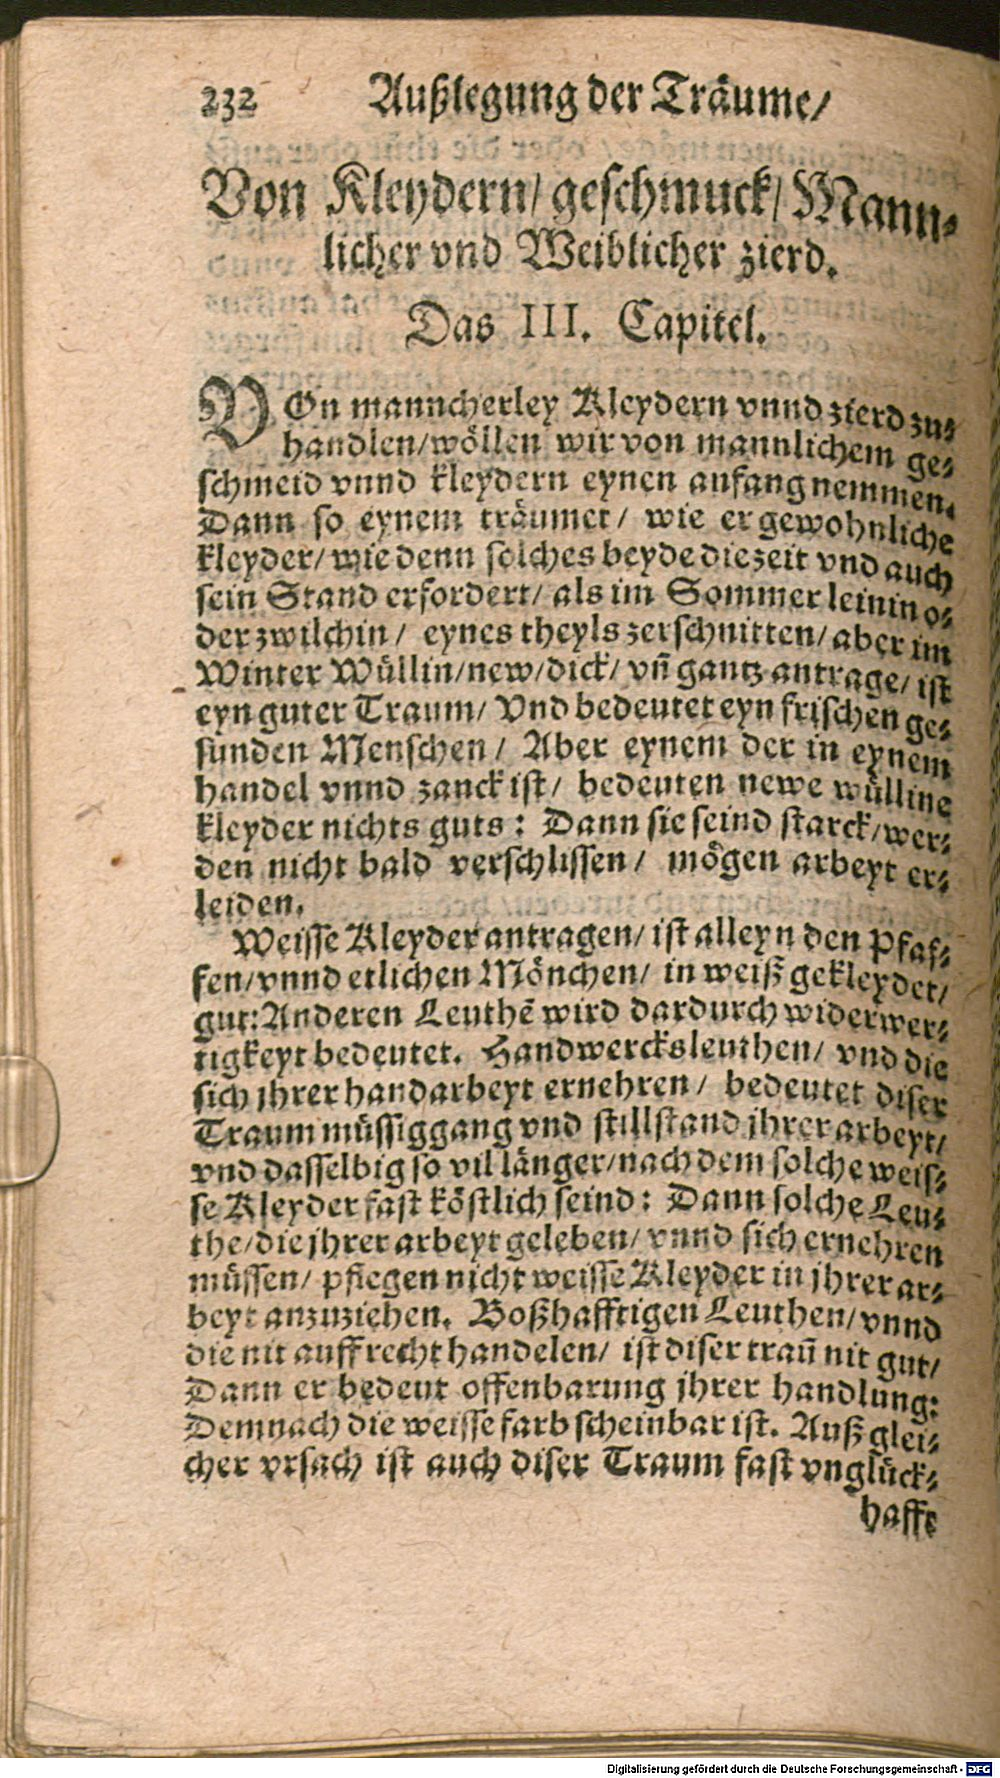 232 Außlegung der Träume/
Von Kleydern/ geschmuck/ Mann⸗
licher vnd Weiblicher zierd.
Das III. Capitel.
VOn manncherley Kleydern vnnd zierd zu⸗
handlen/ wöllen wir von mannlichem ge⸗
schmeid vnnd kleydern eynen anfang nemmen.
Dann so eynem träumet/ wie er gewohnliche
kleyder/ wie denn solches beyde die zeit vnd auch
sein Stand erfordert/ als im Sommer leinin o⸗
der zwilchin/ eynes theyls zerschnitten/ aber im
Winter Wüllin/ new/ dick/ vñ gantz antrage/ ist
eyn guter Traum/ Vnd bedeutet eyn frischen ge⸗
sunden Menschen/ Aber eynem der in eynem
handel vnnd zanck ist/ bedeuten newe wülline
kleyder nichts guts: Dann sie seind starck/ wer⸗
den nicht bald verschlissen/ mögen arbeyt er⸗
leiden.
Weisse Kleyder antragen/ ist alleyn den Pfaf⸗
fen/ vnnd etlichen Mönchen/ in weiß gekleydet/
gut: Anderen Leuthẽ wird dardurch widerwer⸗
tigkeyt bedeutet. Handwercksleuthen/ vnd die
sich jhrer handarbeyt ernehren/ bedeutet diser
Traum müssiggang vnd stillstand jhrer arbeyt/
vnd dasselbig so vil länger/ nach dem solche weis⸗
se Kleyder fast köstlich seind: Dann solche Leu⸗
the/ die jhrer arbeyt geleben/ vnnd sich ernehren
müssen/ pflegen nicht weisse Kleyder in jhrer ar⸗
beyt anzuziehen. Boßhafftigen Leuthen/ vnnd
die nit auffrecht handelen/ ist diser traũ nit gut/
Dann er bedeut offenbarung jhrer handlung:
Demnach die weisse farb scheinbar ist. Auß glei⸗
cher vrsach ist auch diser Traum fast vnglück⸗
hafft
Digitalisierung gefördert durch die Deutsche Forschungsgemeinschaft - DFG